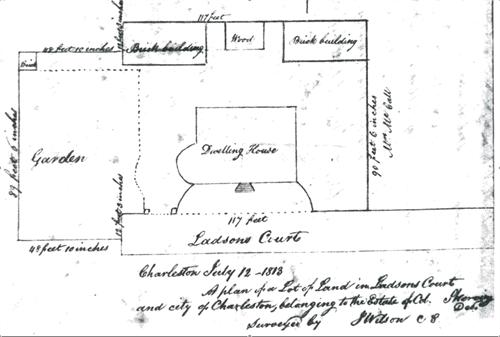 117 feet
48 feet 10 inches
12 feet 3 inches
Brick building
Wood
Brick building
Brick
89 feet 6 inches
Garden
Dwelling House
90 feet 6 inches
Mrs McCall
12 feet 3 inches
117 feet
48 feet 10 inches
Ladsons Court
Charleston July 12 -1813
A plan of a Lot of Land in Ladsons Court
and city of Charleston, belonging to the Estate of Col.
Surveyed by J Wilson C S